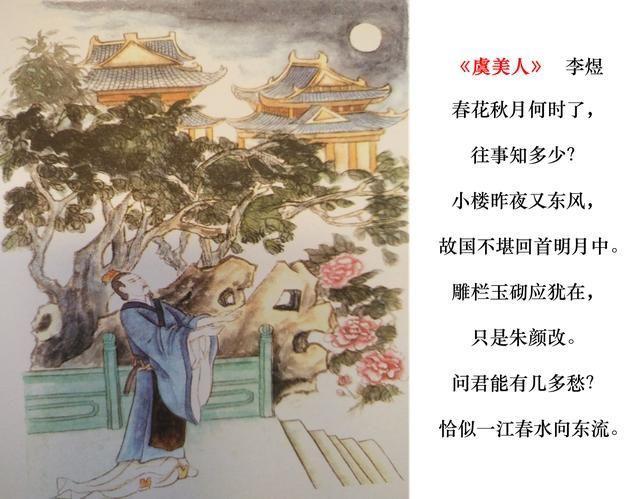 《虞美人》 李煜
春花秋月何时了，
往事知多少？
小楼昨夜又东风，
故国不堪回首明月中。
雕栏玉砌应犹在，
只是朱颜改。
问君能有几多愁？
恰似一江春水向东流。